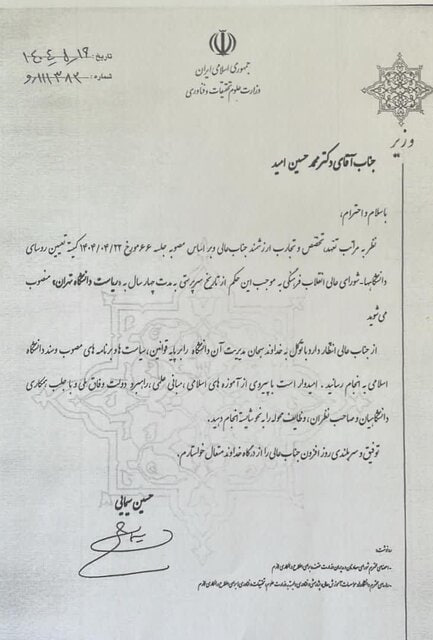 جمهوری اسلامی ایران
وزارت علوم تحقیقات و فناوری
تاریخ: ۱۴۰۴/۵/۱۹
شماره: ۱۱۱۳۸۲/و
وزیر
جناب آقای دکتر محمد حسین امید
با سلام و احترام،
نظر به مراتب تعهد، تخصص و تجارب ارزشمند جناب‌عالی و بر اساس مصوبه جلسه ۶۶ مورخ ۱۴۰۴/۰۴/۲۲ کمیته تعیین روسای
دانشگاهها- شورای عالی انقلاب فرهنگی به موجب این حکم از تاریخ سرپرستی به مدت چهار سال به «ریاست دانشگاه تهران» منصوب
می‌شوید
از جناب عالی انتظار دارد با توکل به خداوند سبحان مدیریت آن دانشگاه را بر پایه قوانین، سیاست‌ها و برنامه های مصوب و سند دانشگاه
اسلامی به انجام رسانید. امیدوار است با پیروی از آموزه های اسلامی، مبانی علمی، راهبرد دولت وفاق ملی و با جلب همکاری
دانشگاهیان و صاحب نظران، وظایف محوله را به نحو شایسته انجام دهید.
توفیق و سربلندی روز افزون جناب عالی را از درگاه خداوند متعال خواستارم.
حسین سیمایی
رونوشت: